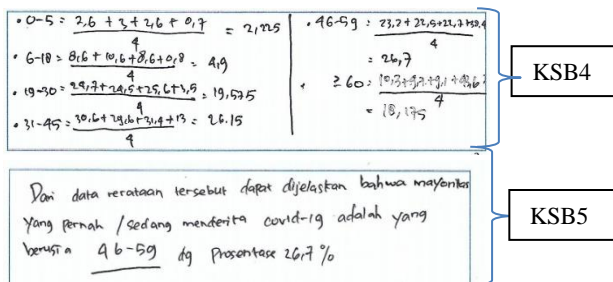 • 0-5 = 2,6 + 3 + 2,6 + 0,7 / 4 = 2,225
• 6-18 = 8,6 + 10,6 + 8,6 + 0,8 / 4 = 4,9
• 19-30 = 24,5 + 25,6 + 3,5 / 4 = 19,575
• 31-45 = 30,6 + 29,6 + 31,4 + 13 / 4 = 26.15
• 46-59 = 23,2 + 22,5 + / 4
= 26,7
• ≥ 60 = 10,3 + + 9,1 + / 4
= 18,175
KSB4
Dari data rerataan tersebut dapat dijelaskan bahwa mayoritas
yang pernah / sedang menderita covid-19 adalah yang
berusia 46-59 dg prosentase 26,7 %
KSB5